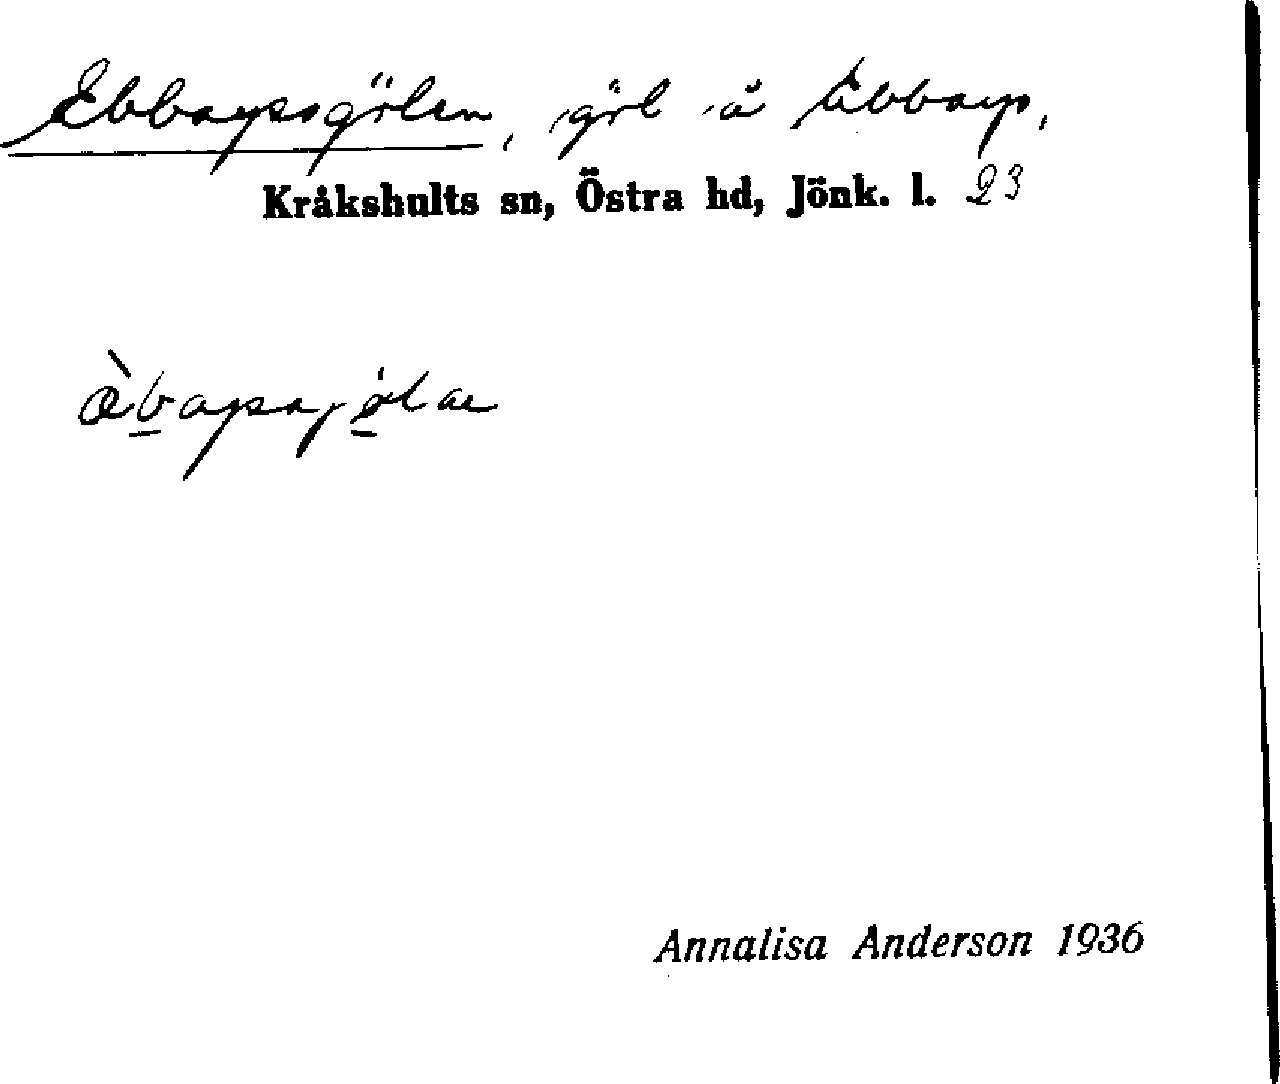 Ebbarpsgölen, göl å Ebbarp,
Kråkshults sn, Östra hd, Jönk. l. 23
Annalisa Anderson 1936